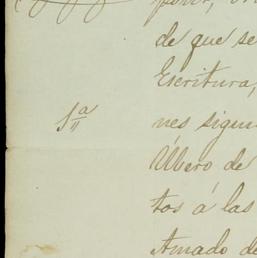 de que se
Escritura,
1ª
nes sigui
Úbero de
tos á las
Amado de